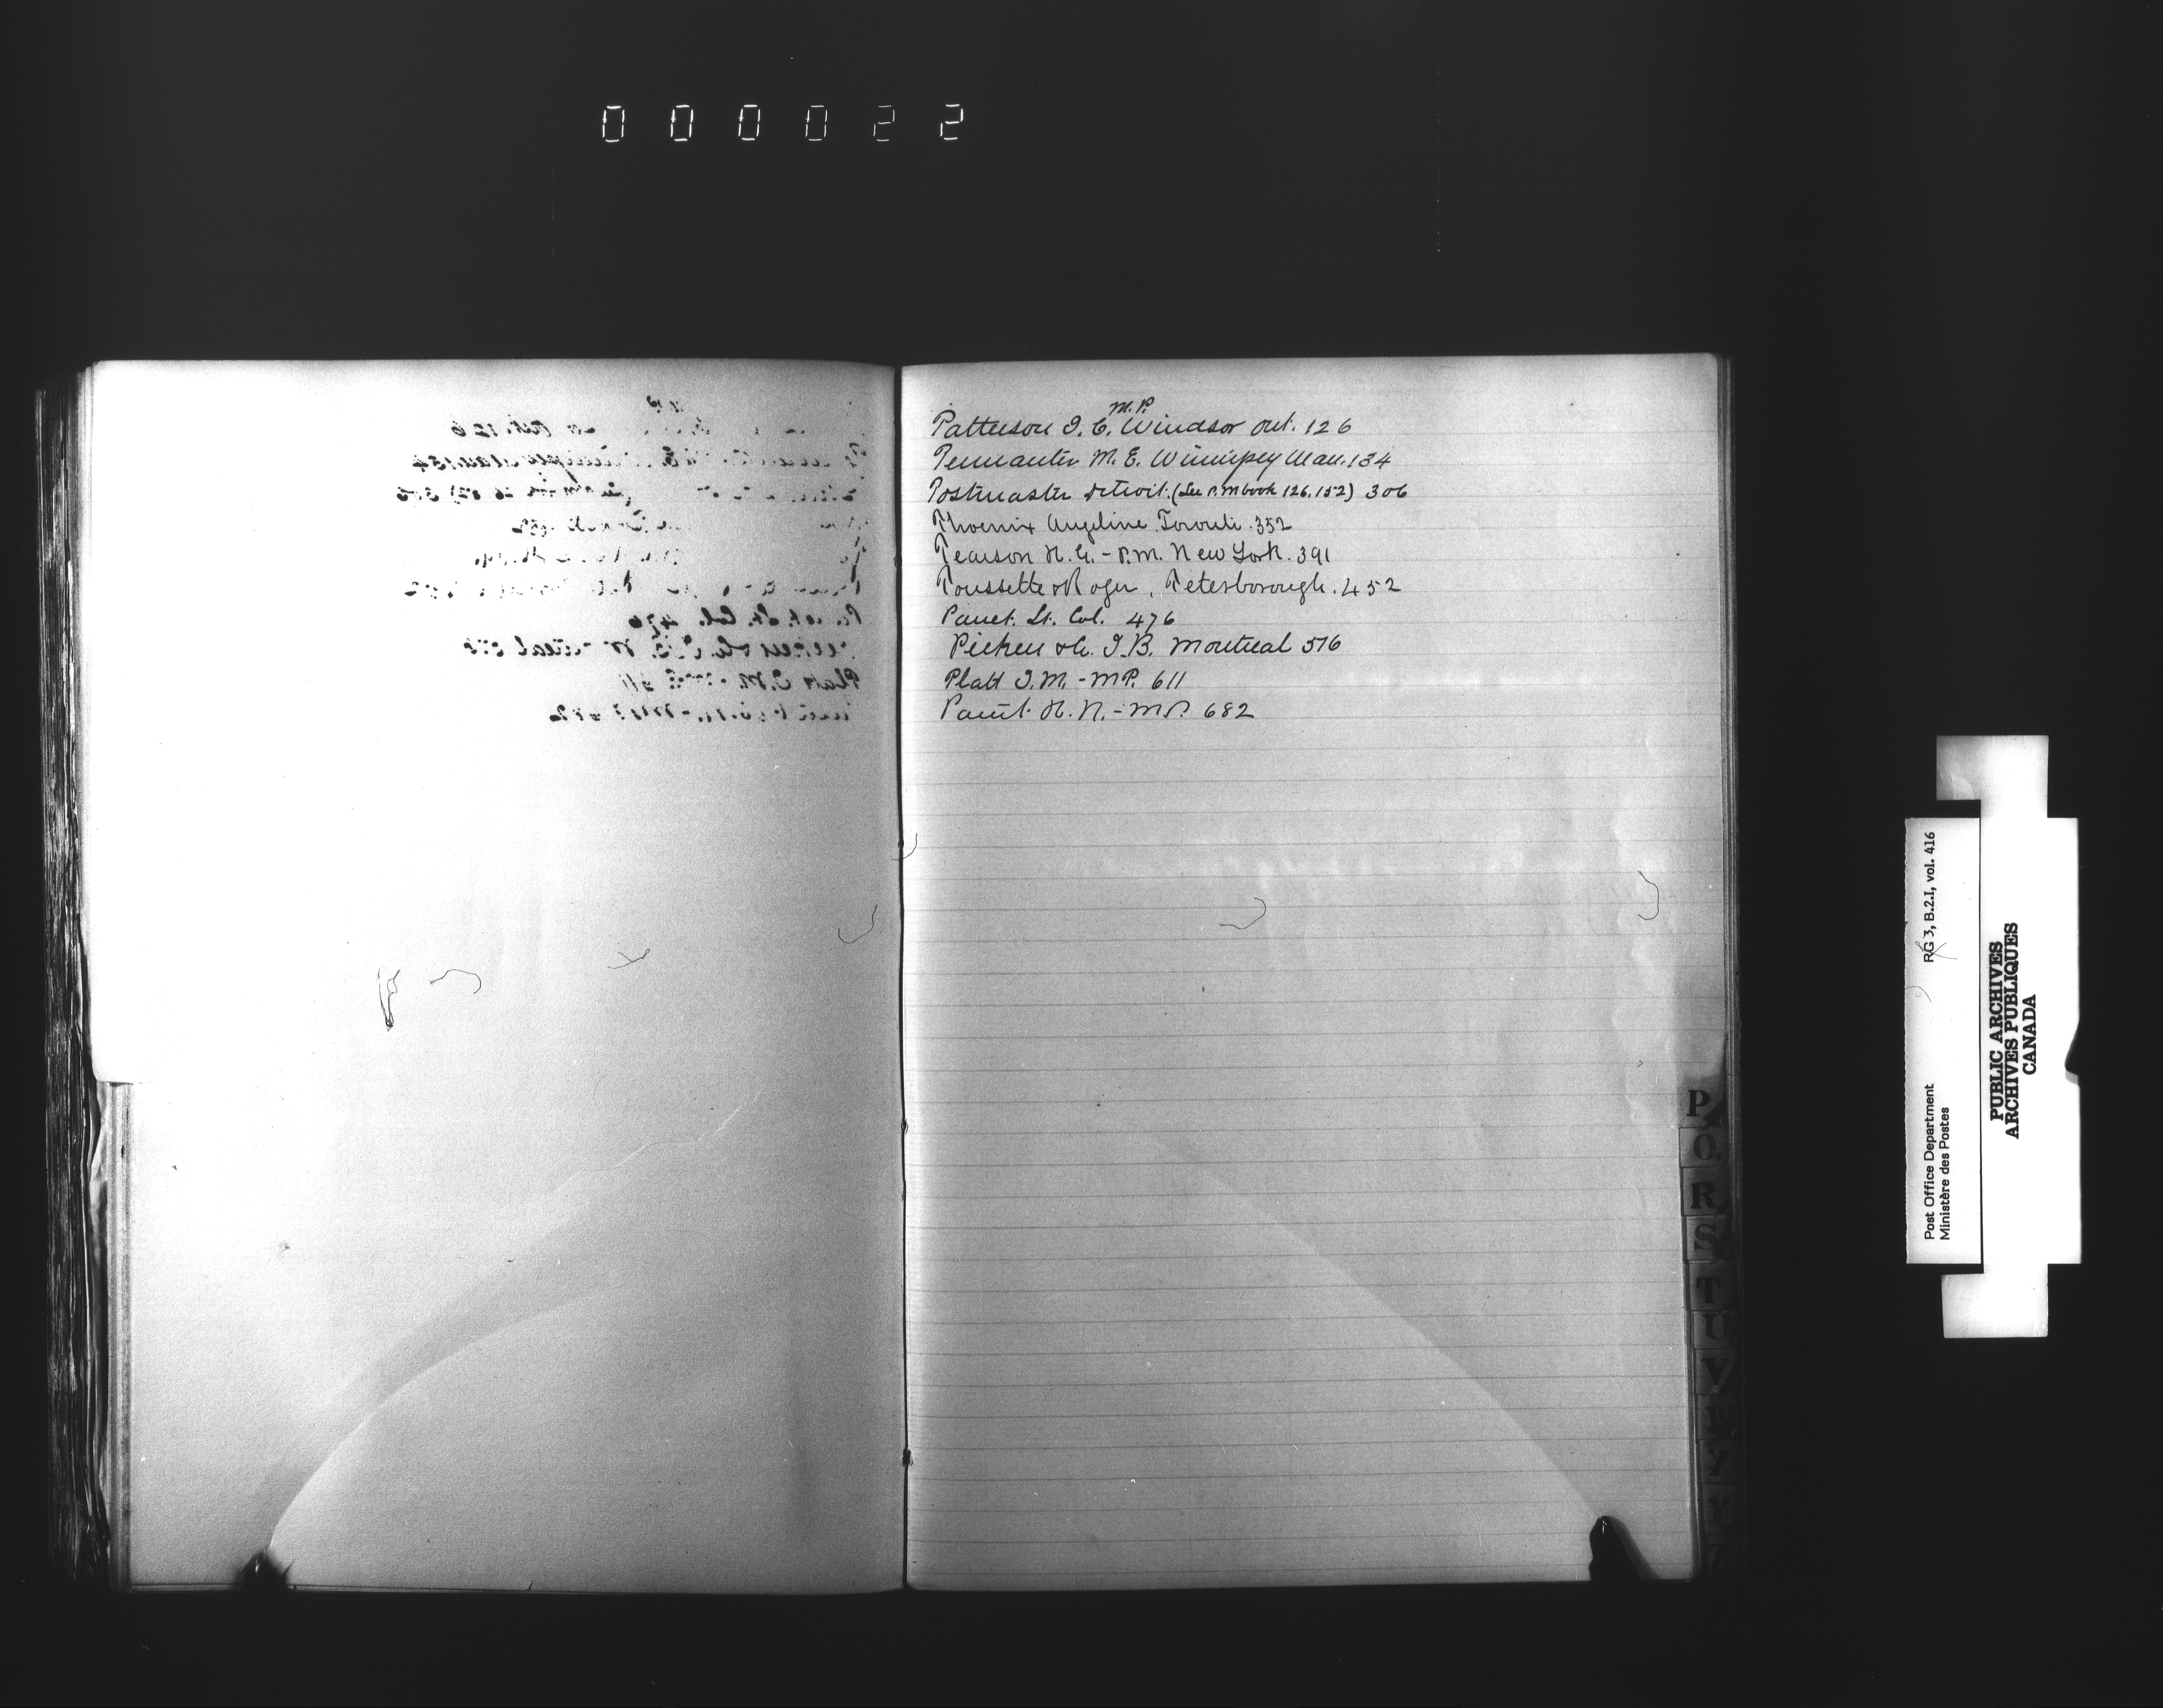 000022
M.P.
Patterson J. C. Windsor Ont. 126
M. E. Winnipeg Man. 134
Postmaster Detroit. (See P.M book 126.152) 306
Phoenix Angeline Toronto. 352
Pearson H. G. - P.M. New York. 391
Poussette & Roger, Peterborough. 452
Panet. Lt. Col. 476
Picken & Co. J. B. Montreal 516
Platt J. M. - M.P. 611
H. N. - M.P. 682
P
Q
R
S
T
U
V
X
Y
Z
Post Office Department
Ministère des Postes
RG 3, B.2.I, vol. 416
PUBLIC ARCHIVES
ARCHIVES PUBLIQUES
CANADA